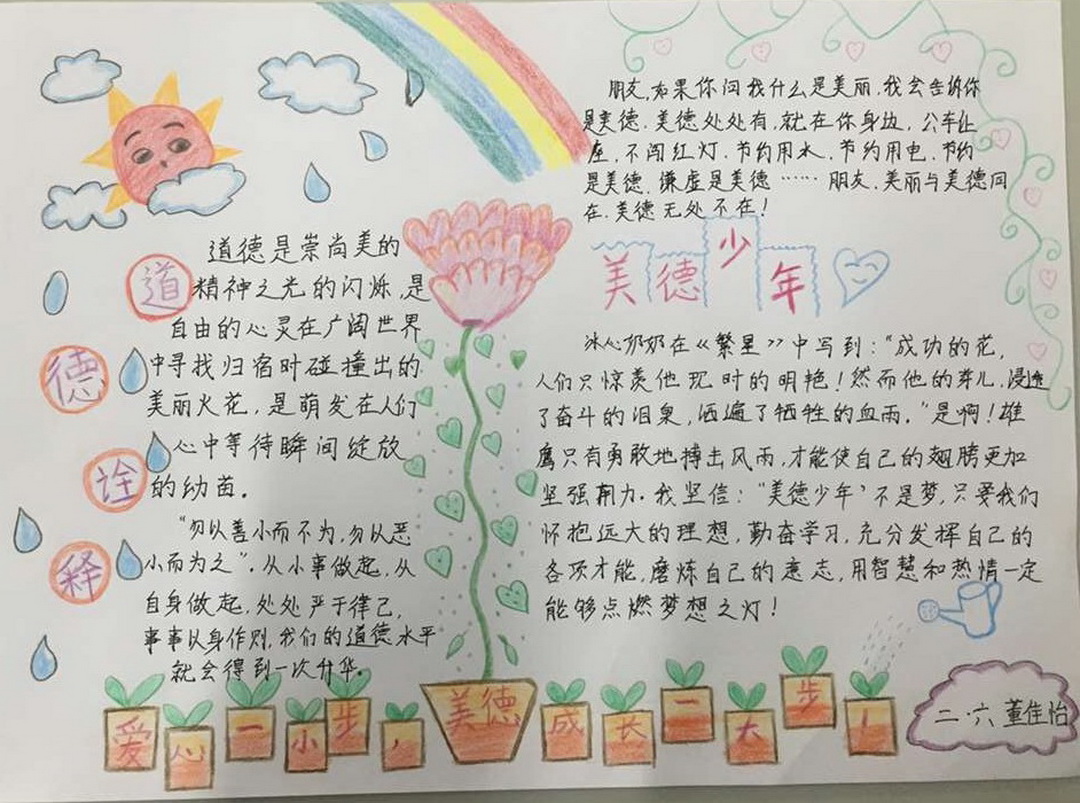 道德诠释
道德是崇尚美的
精神之光的闪烁,是
自由的心灵在广阔世界
中寻找归宿时碰撞出的
美丽火花,是萌发在人们
心中等待瞬间绽放
的幼苗。
“勿以善小而不为,勿以恶
小而为之”。从小事做起,从
自身做起,处处严于律己,
事事以身作则,我们的道德水平
就会得到一次升华.
朋友,如果你问我什么是美丽,我会告诉你
是美德.美德处处有,就在你身边,公车让
座,不闯红灯.节约用水,节约用电.节约
是美德.谦虚是美德……朋友.美丽与美德同
在.美德无处不在!
美德少年
冰心奶奶在《繁星》中写到:“成功的花,
人们只惊羡他现时的明艳!然而他的芽儿,浸透
了奋斗的泪泉,洒遍了牺牲的血雨。”是啊!雄
鹰只有勇敢地搏击风雨,才能使自己的翅膀更加
坚强有力.我坚信:“美德少年’不是梦,只要我们
怀抱远大的理想,勤奋学习,充分发挥自己的
各项才能,磨炼自己的意志,用智慧和热情一定
能够点燃梦想之灯!
爱心一小步,美德成长一大步!
二·六 董佳怡